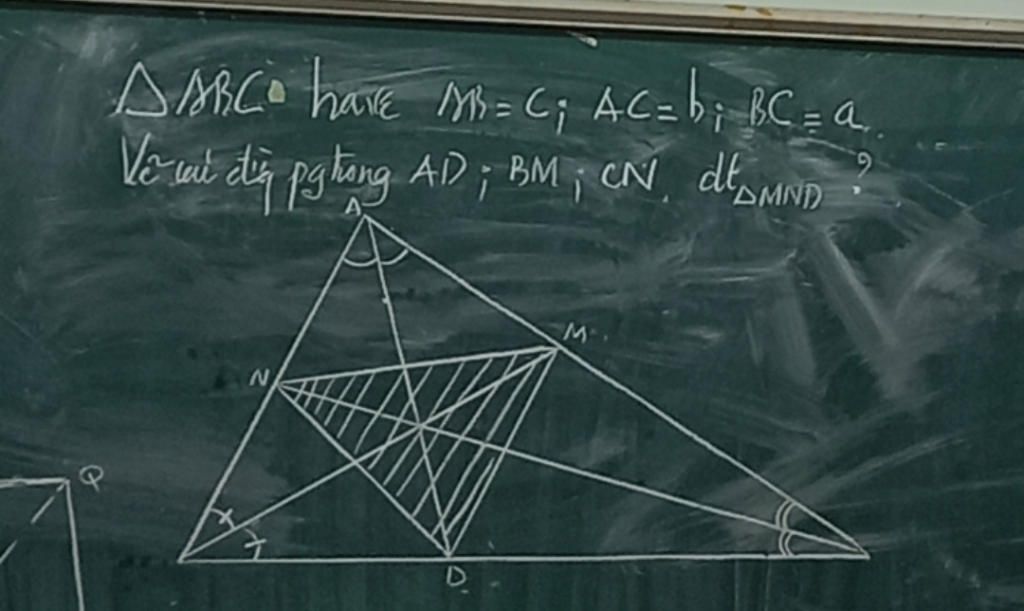 △ABC have AB = c; AC = b; BC = a.
Vẽ pg trong AD; BM; CN. dt△MND ?
A
M
N
Q
D